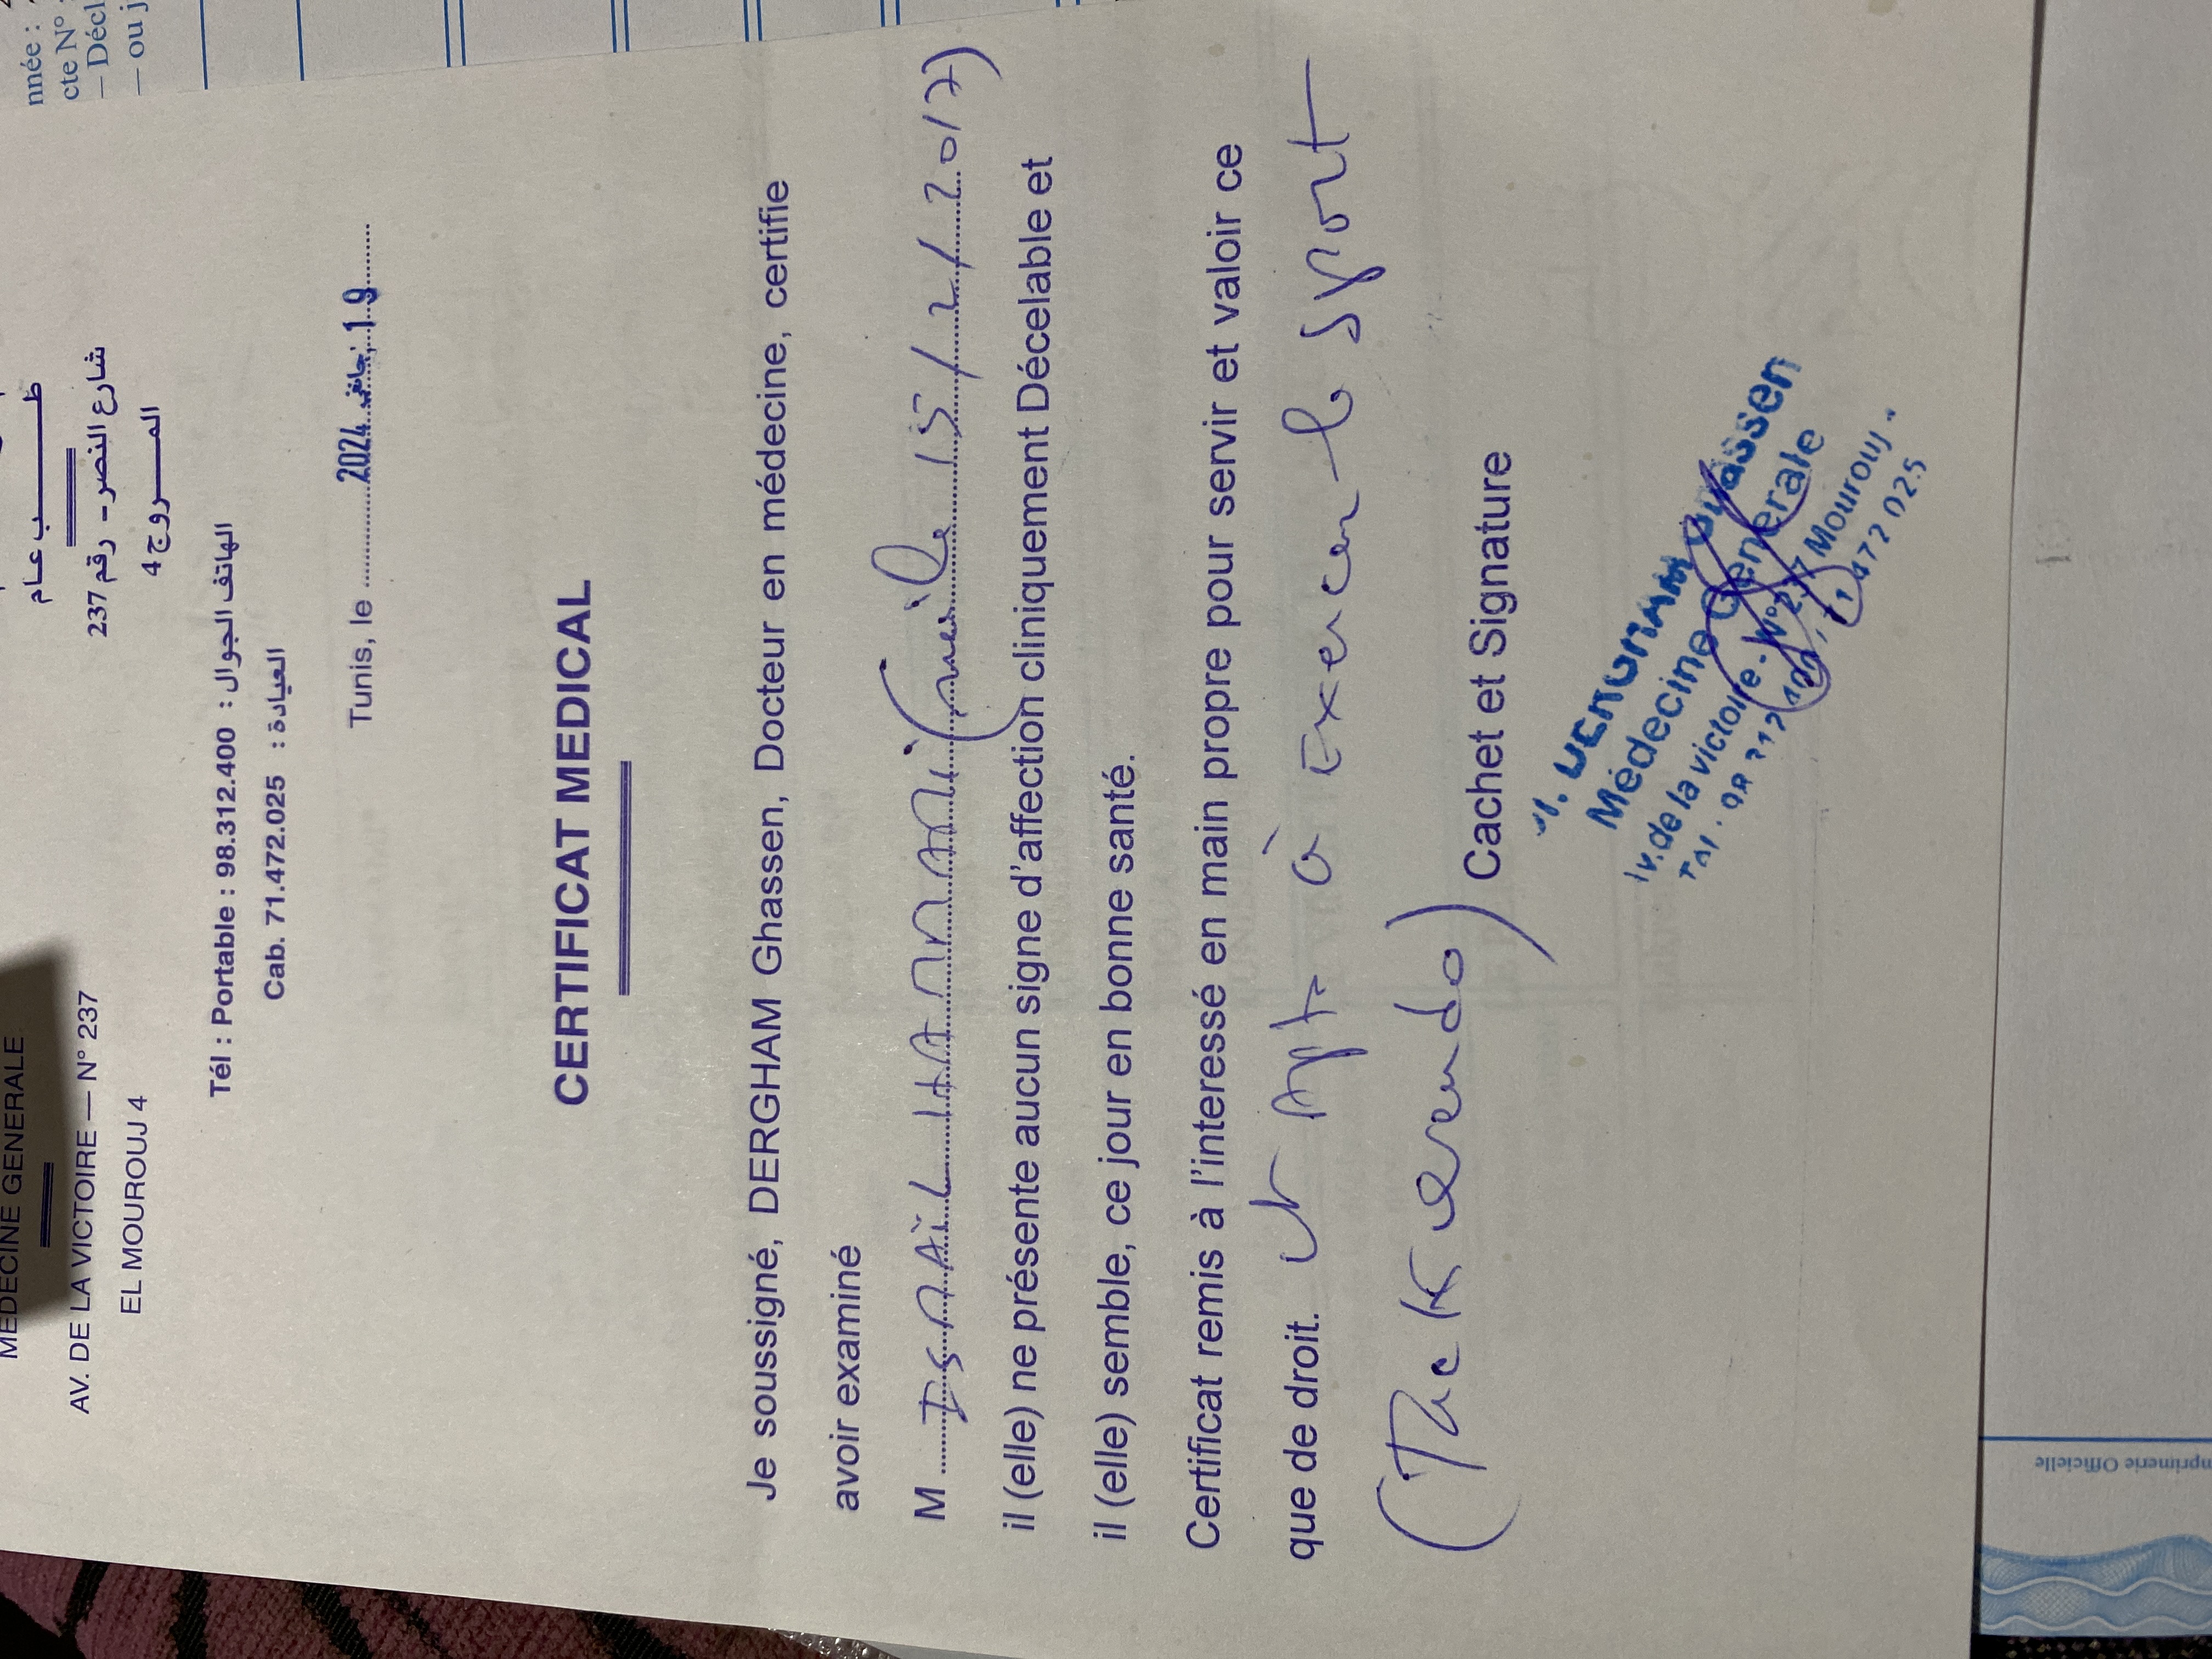 MEDECINE GENERALE
AV. DE LA VICTOIRE — N° 237
EL MOUROUJ 4
طب عام
شارع النصر - رقم 237
المروج 4
Tél : Portable : 98.312.400 : الهاتف الجوال
Cab. 71.472.025 : العيادة
Tunis, le 2024 جانفي 19
CERTIFICAT MEDICAL
Je soussigné, DERGHAM Ghassen, Docteur en médecine, certifie
avoir examiné
M ISMAïL HAMMAMi (né le 15/2/2017)
il (elle) ne présente aucun signe d'affection cliniquement Décelable et
il (elle) semble, ce jour en bonne santé.
Certificat remis à l'interessé en main propre pour servir et valoir ce
que de droit. et Apte à Exercer le sport
(Taekwendo)
Cachet et Signature
Médecine Generale
de la victoire. N° 237 Mourouj
472 025
nnée :
cte N°
— Décl
— ou j
Imprimerie Officielle